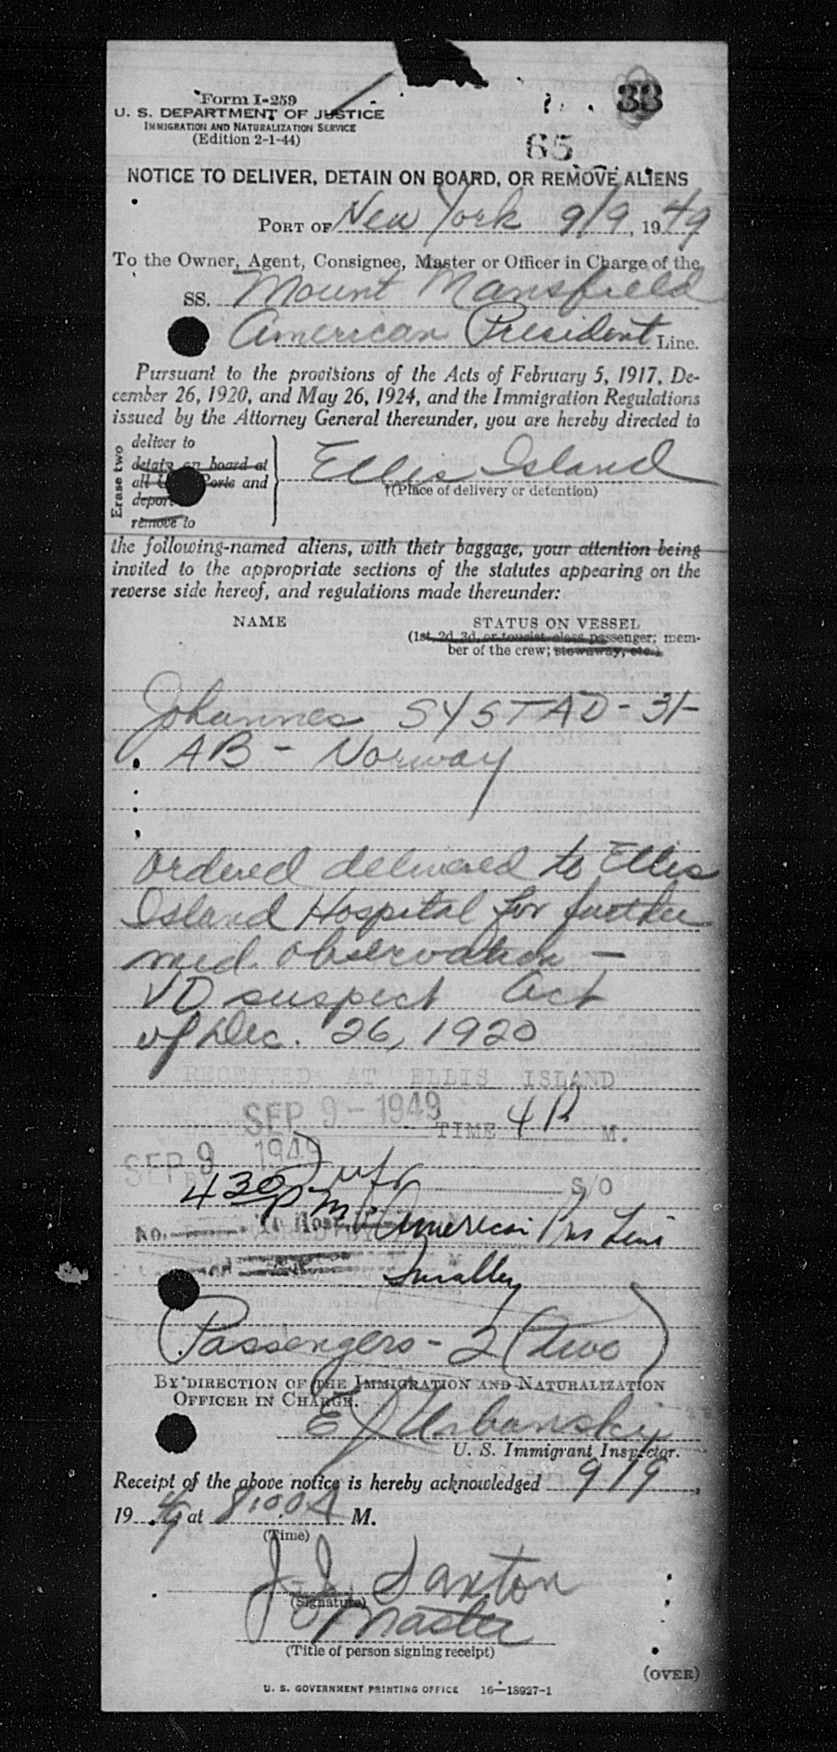 Form I-259
33
U. S. DEPARTMENT OF JUSTICE
IMMIGRATION AND NATURALIZATION SERVICE
(Edition 2-1-44)
65
NOTICE TO DELIVER, DETAIN ON BOARD, OR REMOVE ALIENS
PORT OF New York 9/9, 1949
To the Owner, Agent, Consignee, Master or Officer in Charge of the
SS. Mount Mansfield
American President Line.
Pursuant to the provisions of the Acts of February 5, 1917, De-
cember 26, 1920, and May 26, 1924, and the Immigration Regulations
issued by the Attorney General thereunder, you are hereby directed to
Erase two
deliver to
detain on board at
all U Ports and
deport
remove to
Ellis Island
(Place of delivery or detention)
the following-named aliens, with their baggage, your attention being
invited to the appropriate sections of the statutes appearing on the
reverse side hereof, and regulations made thereunder:
NAME STATUS ON VESSEL
(1st, 2d, 3d, or tourist class passenger; mem-
ber of the crew; stowaway, etc.)
Johannes SYSTAD - 31 -
AB - Norway
Ordered delivered to Ellis
Island Hospital for further
med. observation -
VD suspect Act
of Dec. 26, 1920
RECEIVED AT ELLIS ISLAND
SEP 9 - 1949 TIME 4 P M.
SEP 9 1949
S/O
4 30 pm American Pres Line
No. To Hosp.
Smalley
(Passengers - 2 (two)
BY DIRECTION OF THE IMMIGRATION AND NATURALIZATION
OFFICER IN CHARGE.
E J Urbanski
U. S. Immigrant Inspector.
Receipt of the above notice is hereby acknowledged 9/9,
1949 at 8:00 A M.
(Time)
J. J. Saxton
(Signature)
Master
(Title of person signing receipt)
(OVER)
U. S. GOVERNMENT PRINTING OFFICE 16—18927-1